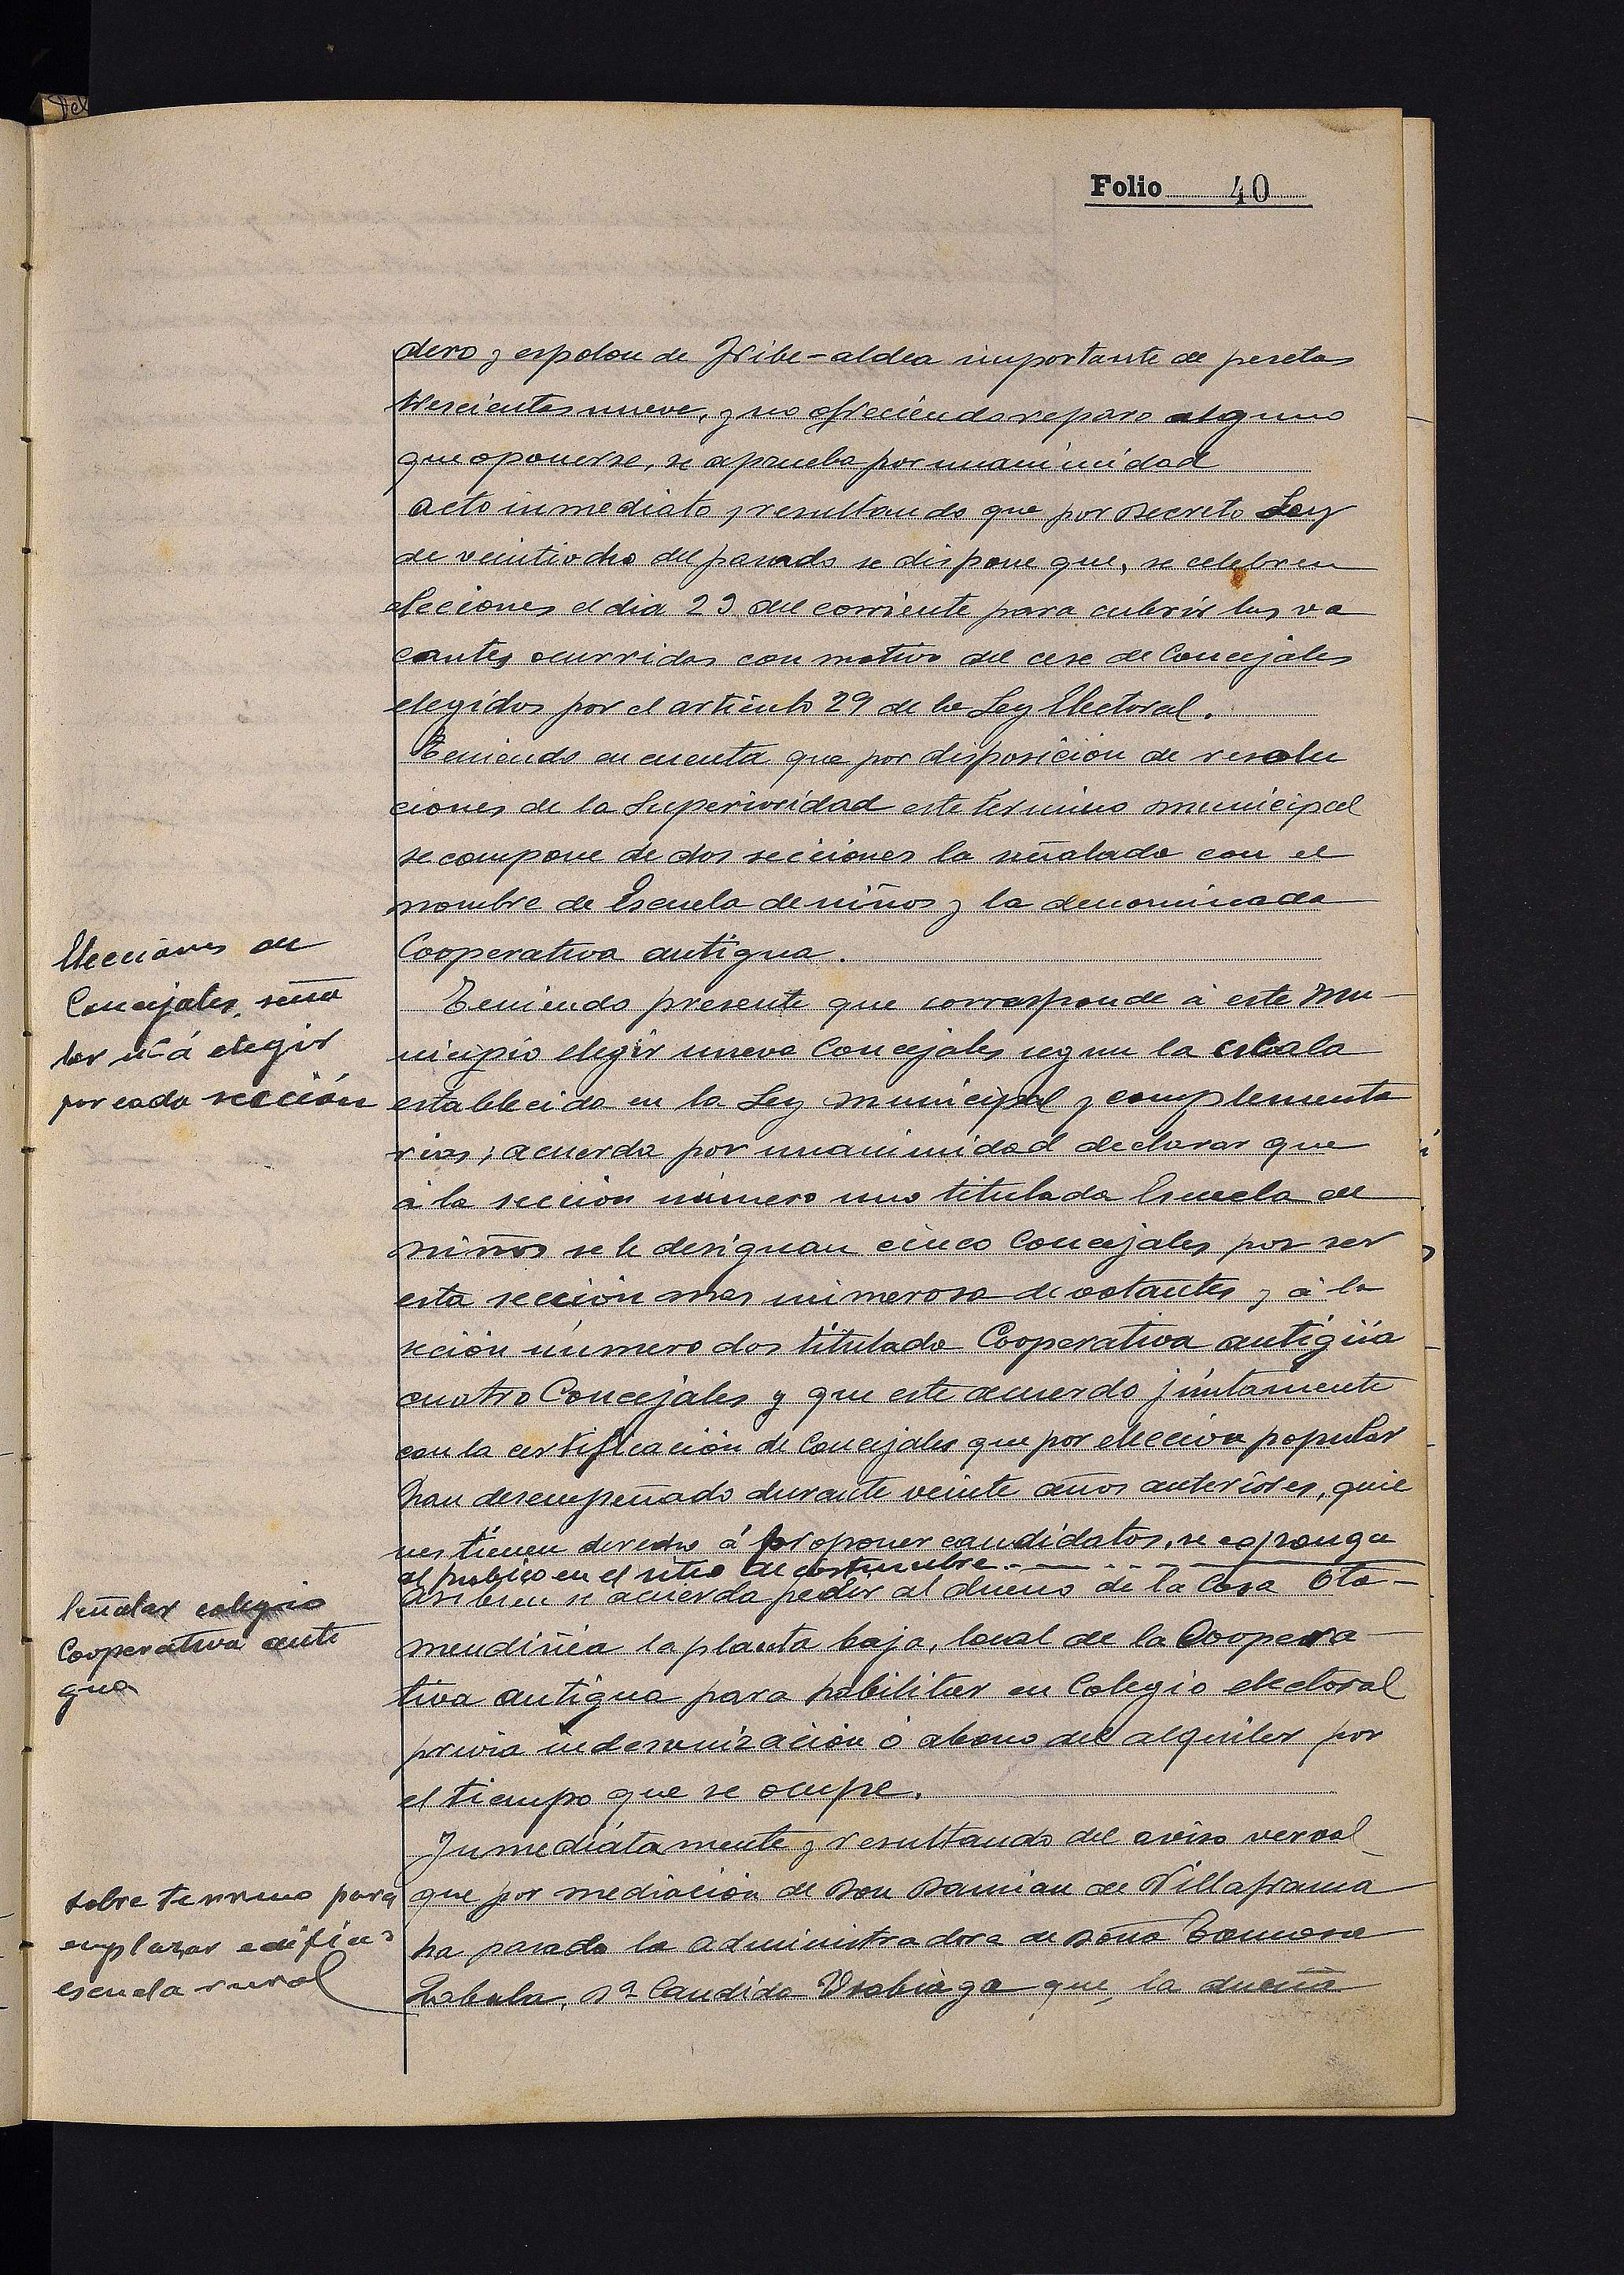 Folio 40
dero y espolon de Iribe-aldea importante de pesetas
trescientas nueve, y no ofreciendo reparo alguno
que oponerse, se aprueba por unanimidad
Acto inmediato, resultando que por Decreto Ley
de veintiocho del pasado se dispone que, se celebren
elecciones el dia 23 del corriente para cubrir las va
cantes ocurridas con motivo del cese de Concejales
elegidos por el artículo 29 de la Ley Electoral.
Teniendo en cuenta que por disposición de resolu
ciones de la Superioridad este término municipal
se compone de dos secciones la señalada con el
nombre de Escuela de niños y la denominada
Cooperativa antigua.
Elecciones de
Concejales, seña
lar nº á elegir
por cada sección
Teniendo presente que corresponde á este Mu-
nicipio elegir nueve Concejales segun la escala
establecida en la Ley Municipal y complementa
rias; acuerda por unanimidad declarar que
á la sección número uno titulada Escuela de
niños se le designan cinco Concejales por ser
esta sección mas numerosa de votantes y á la
sección número dos titulada Cooperativa antigüa
cuatro Concejales y que este acuerdo júntamente
con la certificación de Concejales que por elección popular
han desempeñado durante veinte años anteriores, quie
nes tienen derecho á proponer candidatos, se exponga
al publico en el sitio de costumbre.
Señalar colegio
Cooperativa anti
gua
Asi bien se acuerda pedir al dueño de la Casa Ota-
mendinéa la planta baja, local de la Coopera-
tiva antigua para habilitar en Colegio electoral
previa indemnización ó abono del alquiler por
el tiempo que se ocupe.
Sobre terreno para
emplazar edificio
escuela rural
Inmediátamente y resultando del aviso verval
que por mediación de Don Damian de Villafranca
ha pasado la administradora de Doña Ramona
Zabala, Dª Candida Usabiaga que, la dueña